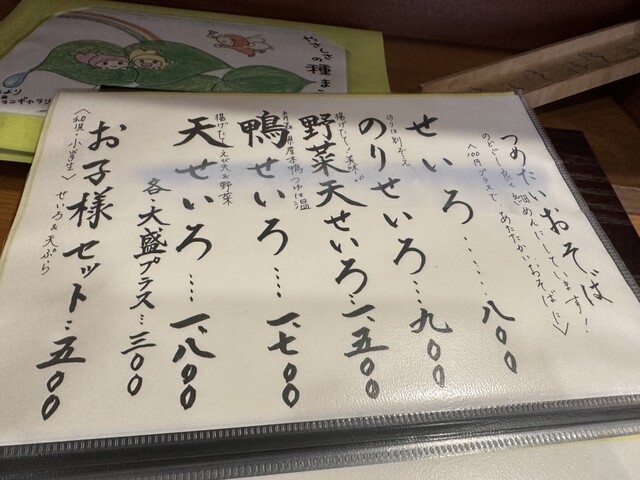 つめたいおそば
のどごし良く細めんにしています!
＜100円プラスで、あたたかいおそばに＞
せいろ……八〇〇
のりは別ぞえ
のりせいろ…九〇〇
揚げたて
野菜天せいろ…一、五〇〇
産本鴨つゆは温
鴨せいろ……一、七〇〇
揚げたてえび天&野菜
天せいろ……一、八〇〇
各・大盛プラス…三〇〇
お子様セット…五〇〇
＜幼児・小学生＞せいろ&天ぷら
やさしさの種ま